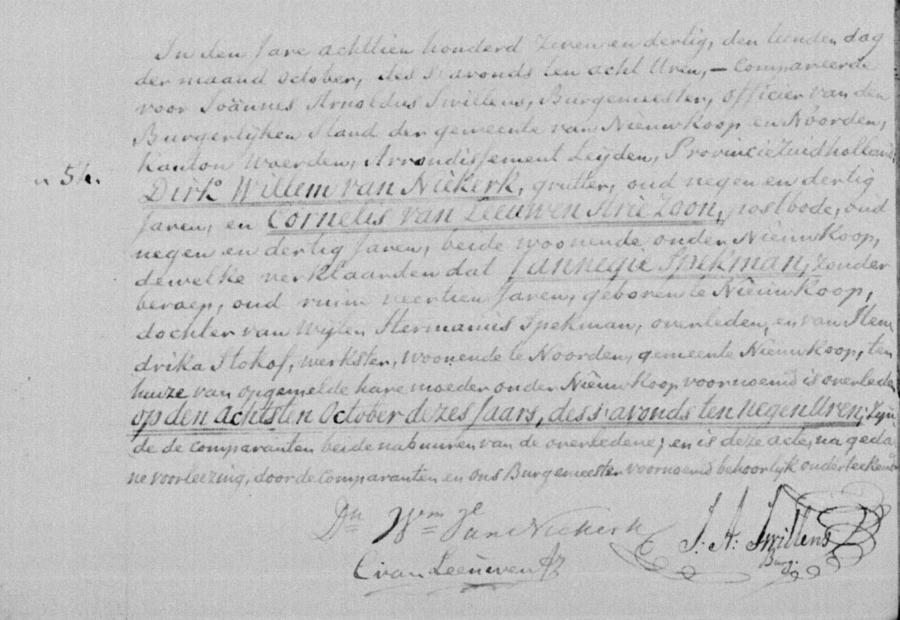 In den Jare achttien honderd zeven en dertig, den tienden dag
der maand October, des s'avonds ten acht Uren, – compareerde
voor Joännes Arnoldus Swillens, Burgemeester, officier van den
Burgerlijken Stand der gemeente van Nieuwkoop en Noorden,
Kanton Woerden, Arrondissement Leyden, Provincie Zuidholland,
n 54.
Dirk Willem van Niekerk, grutter, oud negen en dertig
Jaren, en Cornelis van Leeuwen Arie Zoon, postbode, oud
negen en dertig Jaren, beide woonende onder Nieuwkoop,
dewelke verklaarden dat Jannegie Spekman, zonder
beroep, oud ruim veertien Jaren, geboren te Nieuwkoop,
dochter van Wijlen Hermanus Spekman, overleden, en van Hen
drika Stokof, werkster, woonende te Noorden, gemeente Nieuwkoop, ten
huize van opgemelde hare moeder onder Nieuwkoop voornoemd is overleden
op den achtsten October dezes Jaars, des s'avonds ten negen Uren; zijn
de de comparanten beide nabuuren van de overledene; en is deze acte, na geda
ne voorleezing, door de comparanten en ons Burgemeester voornoemd behoorlijk onderteekend
Dk Wm Van Niekerk
J. A. Swillens
Burg:
C van Leeuwen Az